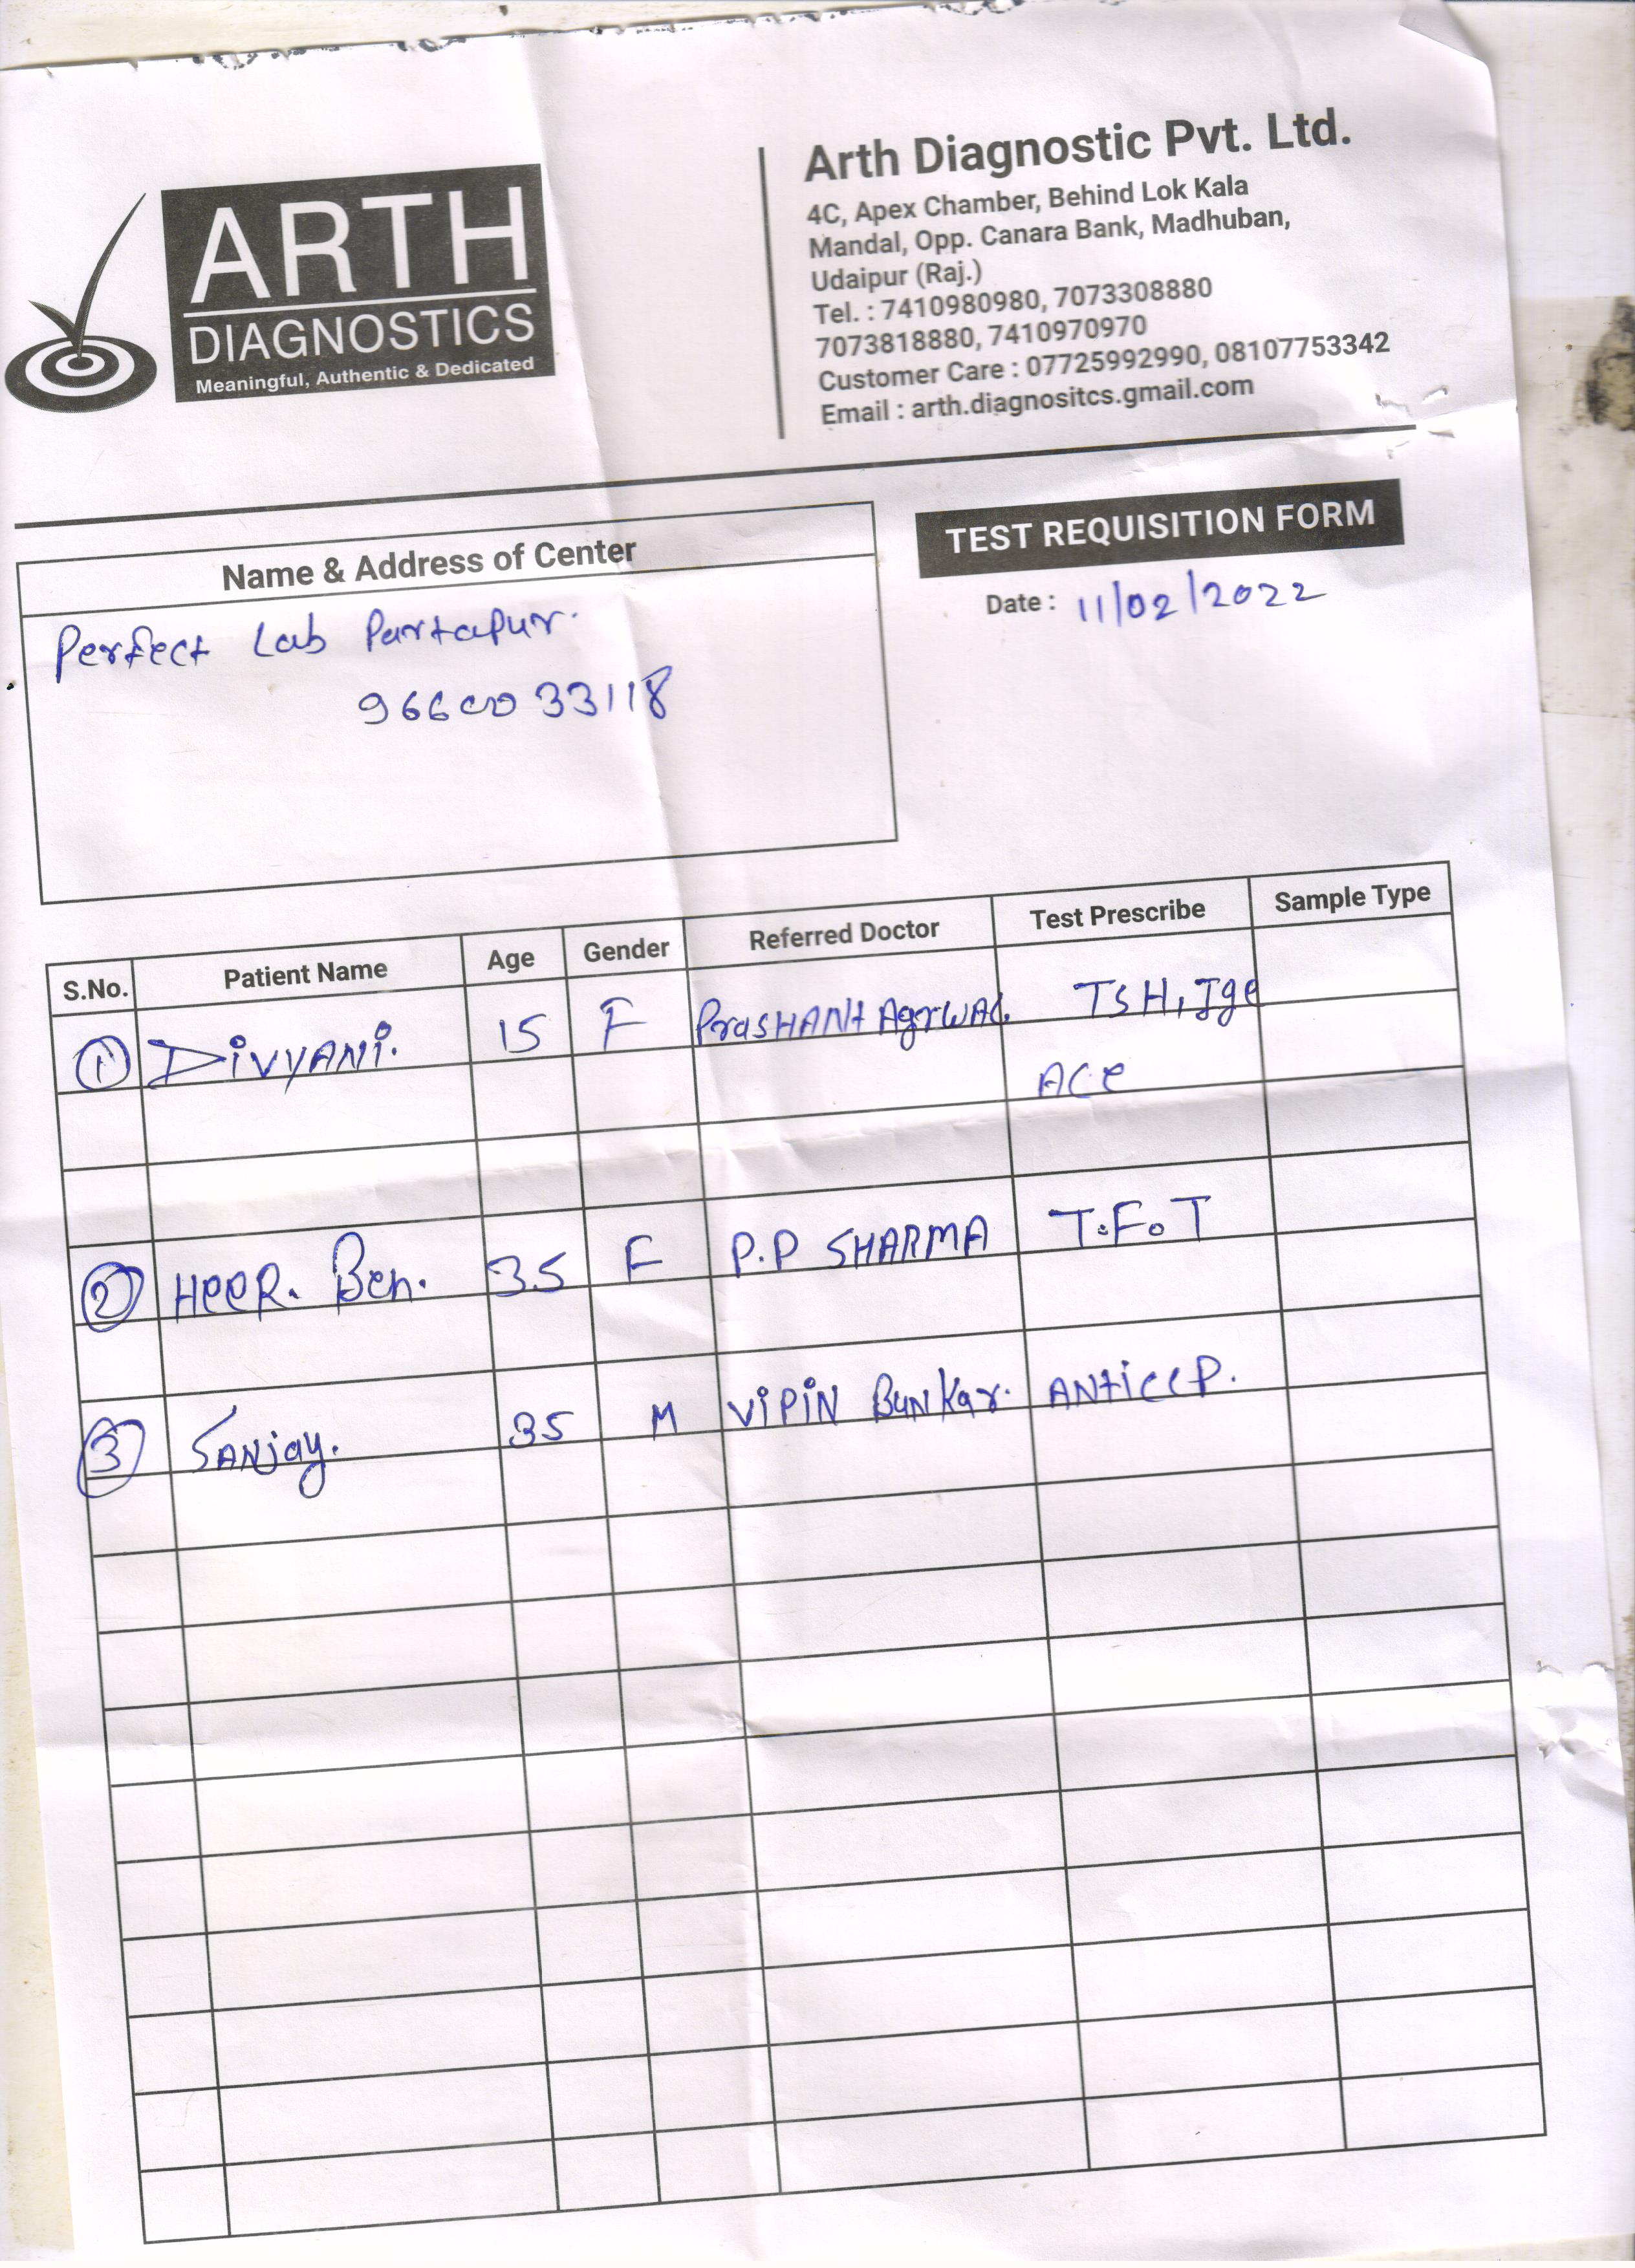 ARTH
DIAGNOSTICS
Meaningful, Authentic & Dedicated
Arth Diagnostic Pvt. Ltd.
4C, Apex Chamber, Behind Lok Kala
Mandal, Opp. Canara Bank, Madhuban,
Udaipur (Raj.)
Tel. : 7410980980, 7073308880
7073818880, 7410970970
Customer Care : 07725992990, 08107753342
Email : arth.diagnositcs.gmail.com
TEST REQUISITION FORM
Date : 11/02/2022
Name & Address of Center
Perfect Lab Partapur.
9660033118
S.No. Patient Name Age Gender Referred Doctor Test Prescribe Sample Type
1 DiVYANi. 15 F PraSHANt AgrWAL. TSH, Ige
ACe
2 HeeR. Ben. 35 F P.P SHARMA T.F.T
3 SANjay. 35 M ViPiN BunKar. ANtiCCP.